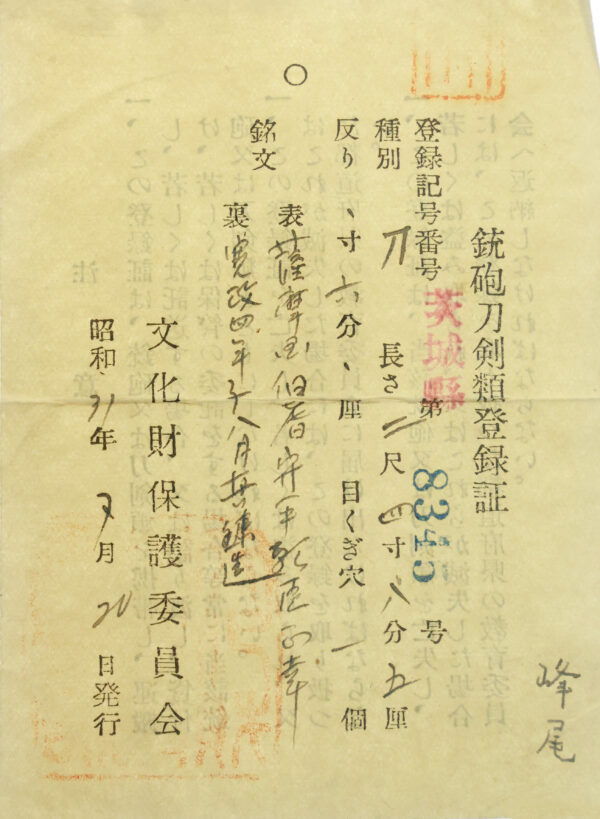 峰尾
銃砲刀剣類登録証
登録記号番号 茨城縣 第 8345 号
種別 刀 長さ 二尺 四寸 八分 五厘
反り 、寸 六分 、厘 目くぎ穴 一 個
銘文 表 薩摩国伯耆守平朝臣正幸
裏 寛政四年子八月 造
文化財保護委員会
昭和 31年 月 20 日発行